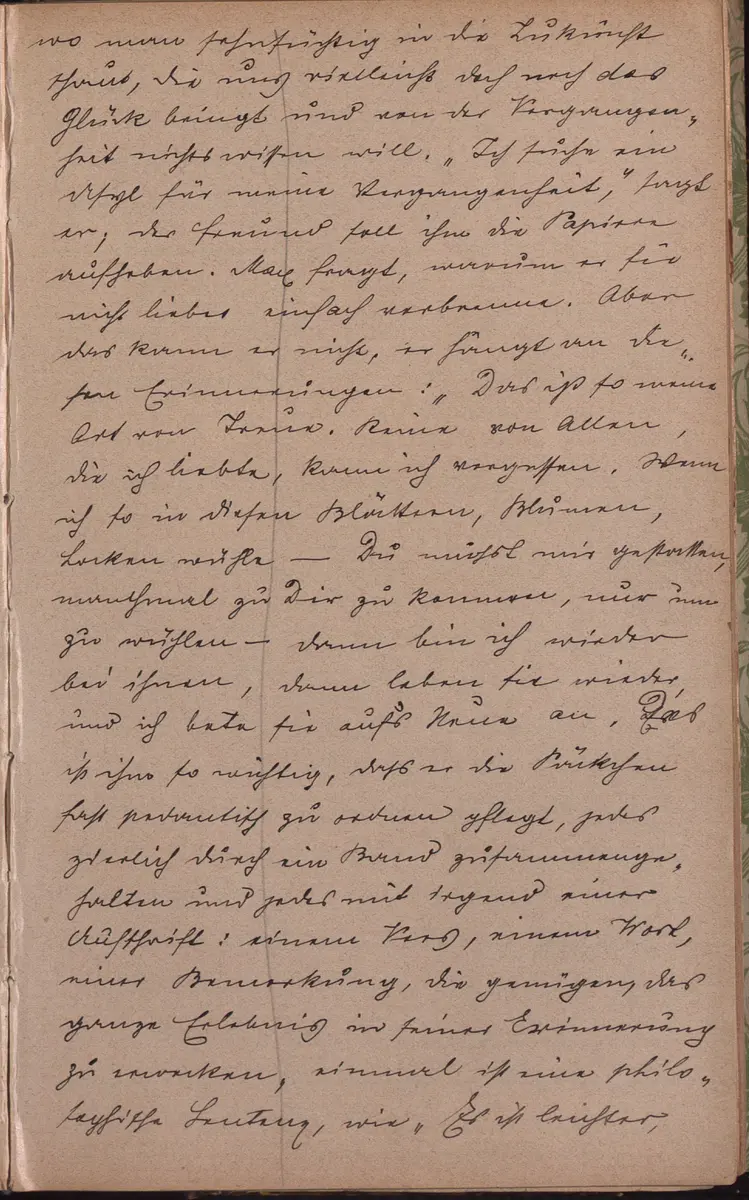 wo man sehnsüchtig in die Zukunft
schaut, die uns vielleicht doch noch das
Glück bringt und von der Vergangen„
heit nichts wissen will. „Ich suche ein
Asyl für meine Vergangenheit,“ sagt
er; der Freund soll ihm die Papiere
aufheben. Max fragt, warum er sie
nicht lieber einfach verbrenne. Aber
das kann er nicht, er hängt an die„
sen Erinnerungen: „Das ist so meine
Art von Treue. Keine von Allen,
die ich liebte, kann ich vergessen. Wenn
ich so in diesen Blättern, Blumen,
Locken wühle — Du musst mir gestatten,
manchmal zu Dir zu kommen, nur um
zu wühlen — dann bin ich wieder
bei ihnen, dann leben sie wieder,
und ich bete sie aufs Neue an. Das
ist ihm so wichtig, dass er die Päckchen
fast pedantisch zu ordnen pflegt, jedes
zierlich durch ein Band zusammenge„
halten und jedes mit irgend einer
Aufschrift: einem Vers, einem Wort,
einer Bemerkung, die genügen, das
ganze Erlebnis in seiner Erinnerung
zu erwecken, einmal ist eine philo„
sophische Sentenz, wie „Es ist leichter,